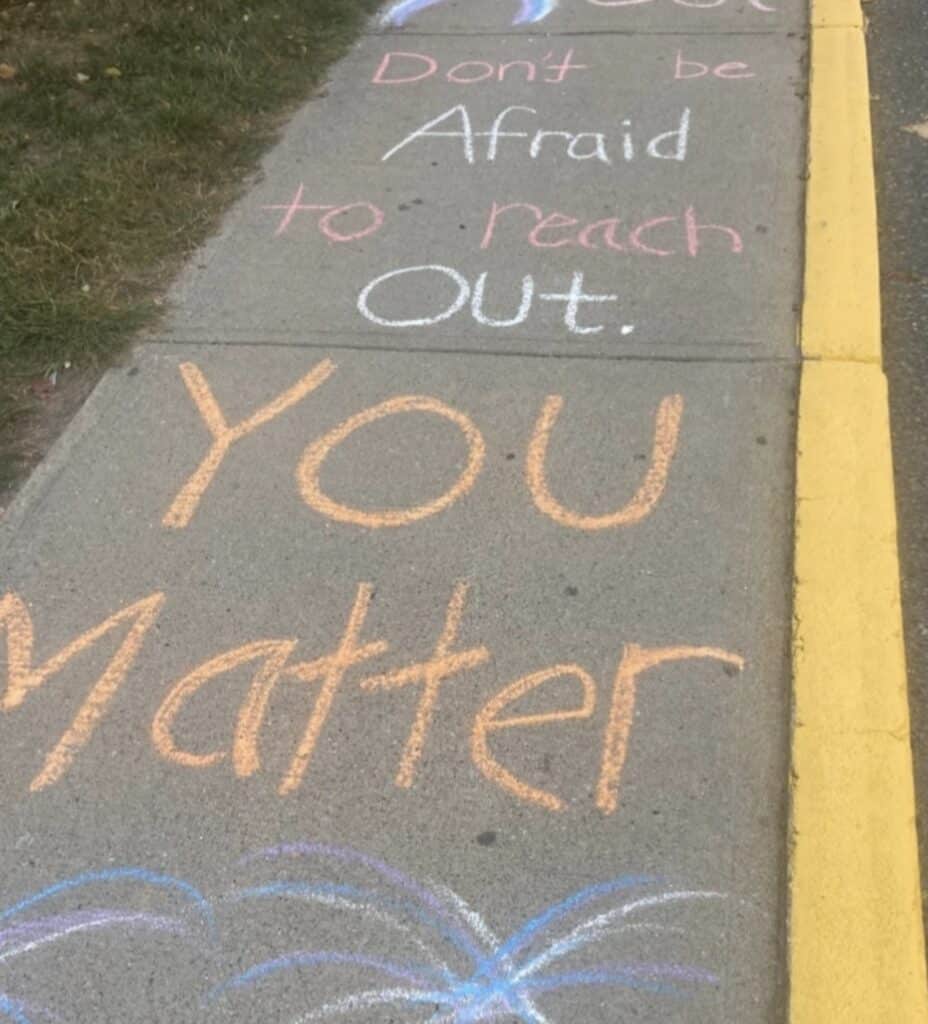 Don't be
Afraid
to reach
Out.
YOU
Matter